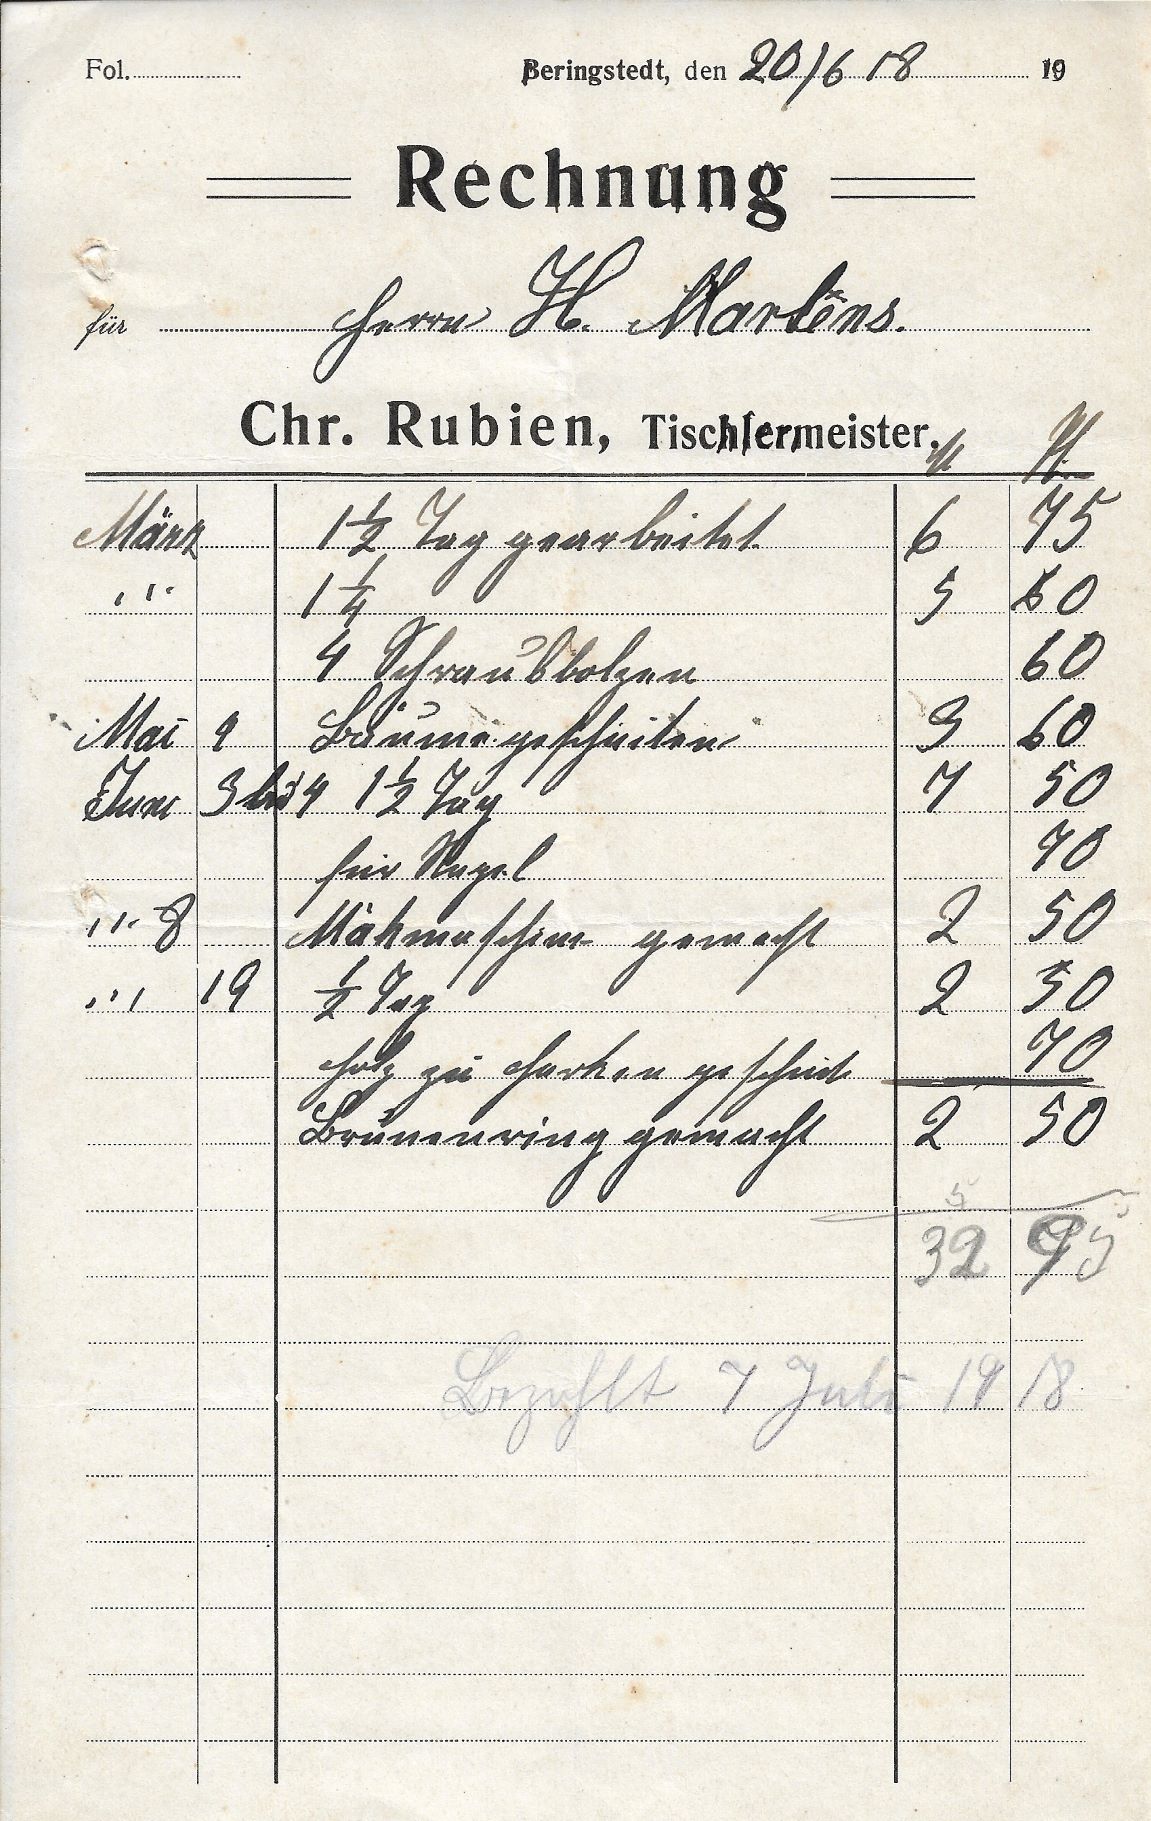 Fol.
Beringstedt, den 20/6 18 19
Rechnung
für Herrn H. Martens.
Chr. Rubien, Tischlermeister.
M Pf.
März 1½ Tag gearbeitet 6 75
" 1¼ 5 60
4 Schraubbolzen 60
Mai 9 Bäume geschnitten 3 60
Juni 3 bis 4 1½ Tag 7 50
für Nagel 70
" 8 Mähmaschine gemacht 2 50
" 19 ½ Tag 2 50
Holz zu Harken geschnit 70
Brunenring gemacht 2 50
5
32 95
Bezahlt 7 Juli 1918